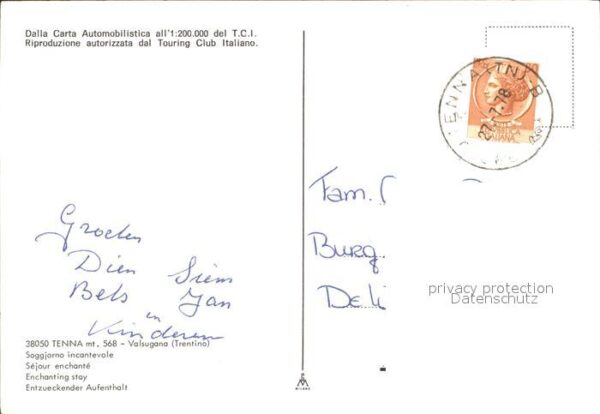 Dalla Carta Automobilistica all'1:200.000 del T.C.I.
Riproduzione autorizzata dal Touring Club Italiano.
TENNA (TN)
27.7.78
ITALIANA
Fam.
Burg.
Deli
privacy protection
Datenschutz
Groeten
Dien Siem
Bets Jan
en
Kinderen
38050 TENNA mt. 568 - Valsugana (Trentino)
Soggiorno incantevole
Séjour enchanté
Enchanting stay
Entzueckender Aufenthalt
MILANO